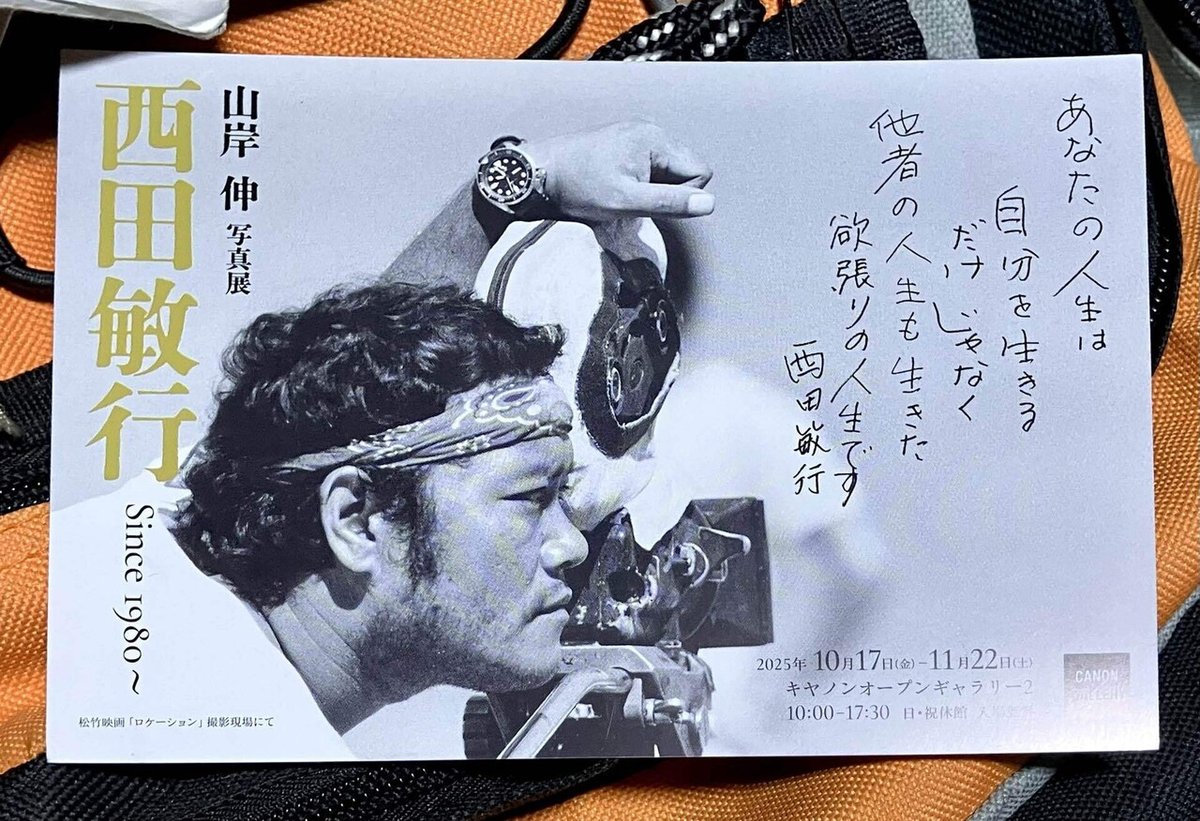 山岸 伸 写真展
西田敏行
Since 1980~
あなたの人生は
自分を生きる
だけじゃなく
他者の人生も生きた
欲張りの人生です
西田敏行
松竹映画「ロケーション」撮影現場にて
2025年 10月17日(金)-11月22日(土)
キヤノンオープンギャラリー2
10:00-17:30 日・祝休館
CANON